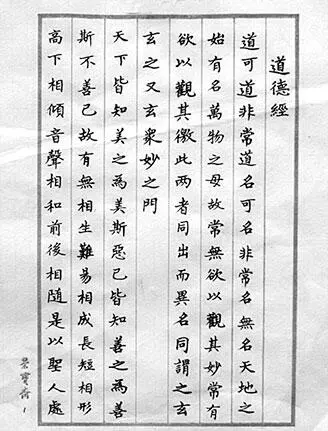 道德經
道可道非常道名可名非常名無名天地之
始有名萬物之母故常無欲以觀其妙常有
欲以觀其徼此两者同出而異名同謂之玄
玄之又玄衆妙之門
天下皆知美之為美斯惡已皆知善之為善
斯不善已故有無相生難易相成長短相形
高下相傾音聲相和前後相隨是以聖人處
榮寶齋
1